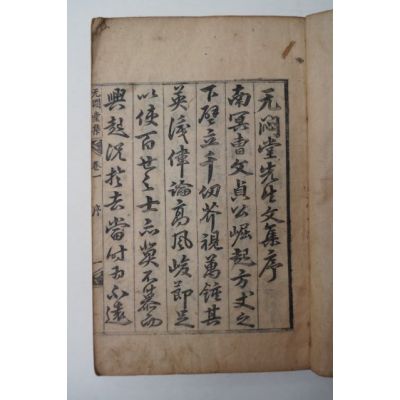 无悶堂先生文集序
南冥曺文貞公崛起方丈之
下壁立千仞芥視萬鍾其
英偉論高風峻節足
以使百世之士莫不慕而
興起況於去當時為不遠
无悶堂集 卷 序 一